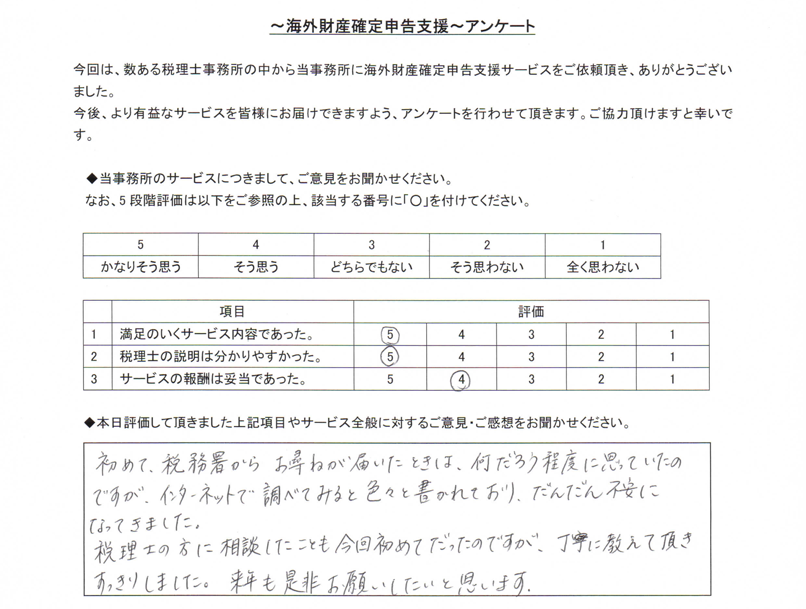 ～海外財産確定申告支援～アンケート
今回は、数ある税理士事務所の中から当事務所に海外財産確定申告支援サービスをご依頼頂き、ありがとうござい
ました。
今後、より有益なサービスを皆様にお届けできますよう、アンケートを行わせて頂きます。ご協力頂けますと幸いで
す。
◆当事務所のサービスにつきまして、ご意見をお聞かせください。
なお、5段階評価は以下をご参照の上、該当する番号に「〇」を付けてください。
5 4 3 2 1
かなりそう思う そう思う どちらでもない そう思わない 全く思わない
項目 評価
1 満足のいくサービス内容であった。 5 4 3 2 1
2 税理士の説明は分かりやすかった。 5 4 3 2 1
3 サービスの報酬は妥当であった。 5 4 3 2 1
◆本日評価して頂きました上記項目やサービス全般に対するご意見・ご感想をお聞かせください。
初めて、税務署から お尋ねが届いたときは、何だろう程度に思っていたの
ですが、インターネットで調べてみると色々と書かれており、だんだん不安に
なってきました。
税理士の方に相談したことも今回初めてだったのですが、丁寧に教えて頂き
すっきりしました。来年も是非お願いしたいと思います。